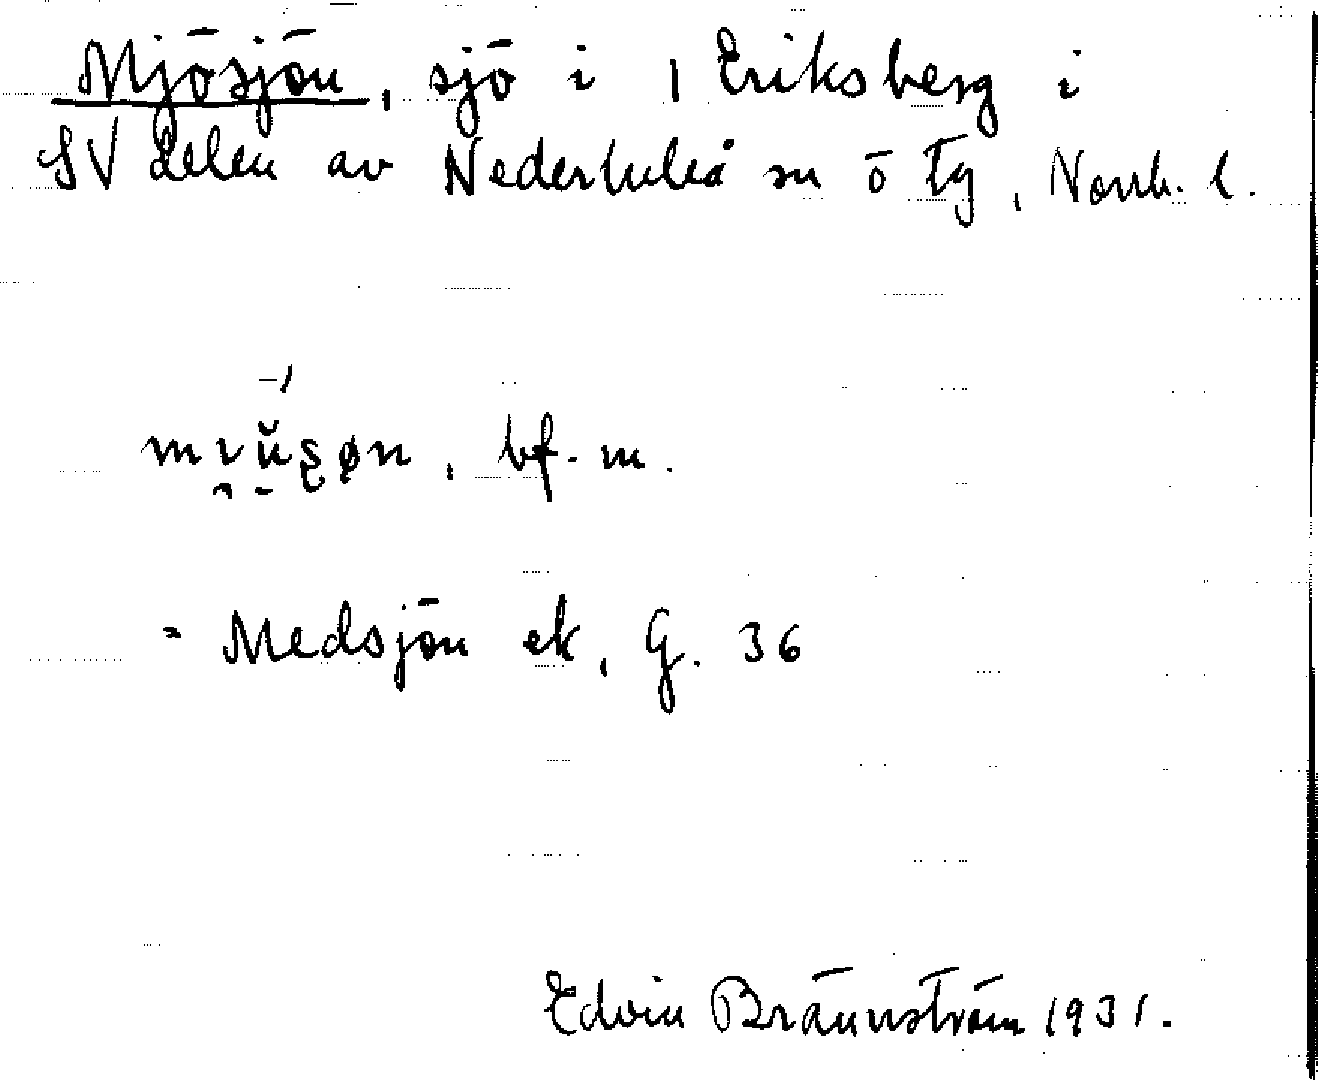 Mjösjön, sjö i 1 Eriksberg i
SV delen av Nederluleå sn ö tg, Norrb. l.
bf. m.
= Medsjön ek, G. 36
Edvin Brännström 1931.